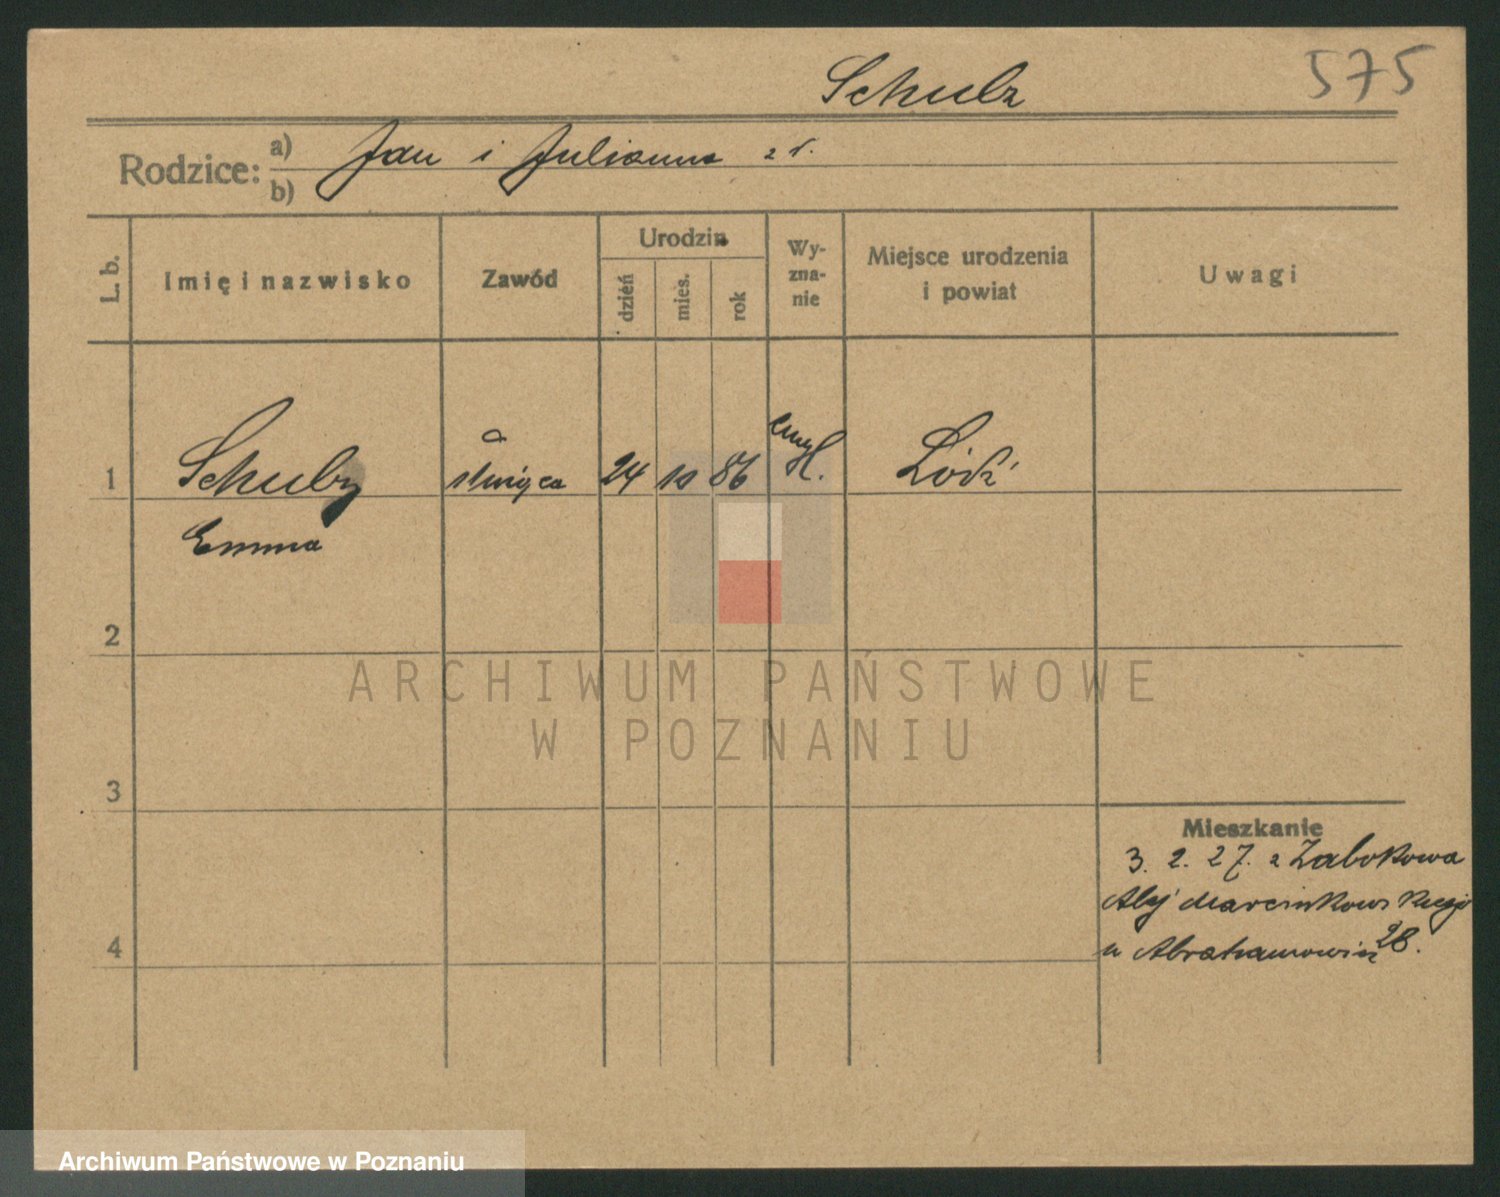 Schulz
575
Rodzice: a) Jan i Julianna z d.
b)
L. b.
Imię i nazwisko
Zawód
Urodzin
dzień
mies.
rok
Wy-
zna-
nie
Miejsce urodzenia
i powiat
Uwagi
1 Schulz służąca 24 10 86 Łódź
Emma
2
ARCHIWUM PAŃSTWOWE
W POZNANIU
3
Mieszkanie
3. 2. 27. z Żabikowa
Alej Marcinkowskiego
u Abrahamowicz 28.
4
Archiwum Państwowe w Poznaniu